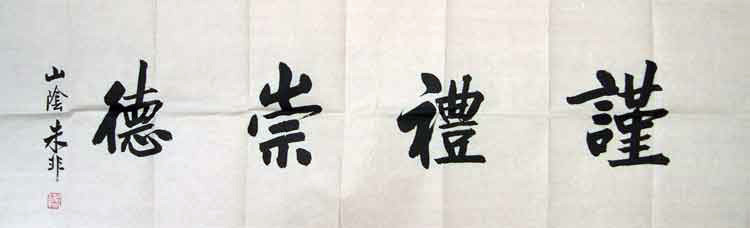 謹禮崇德
山陰未非